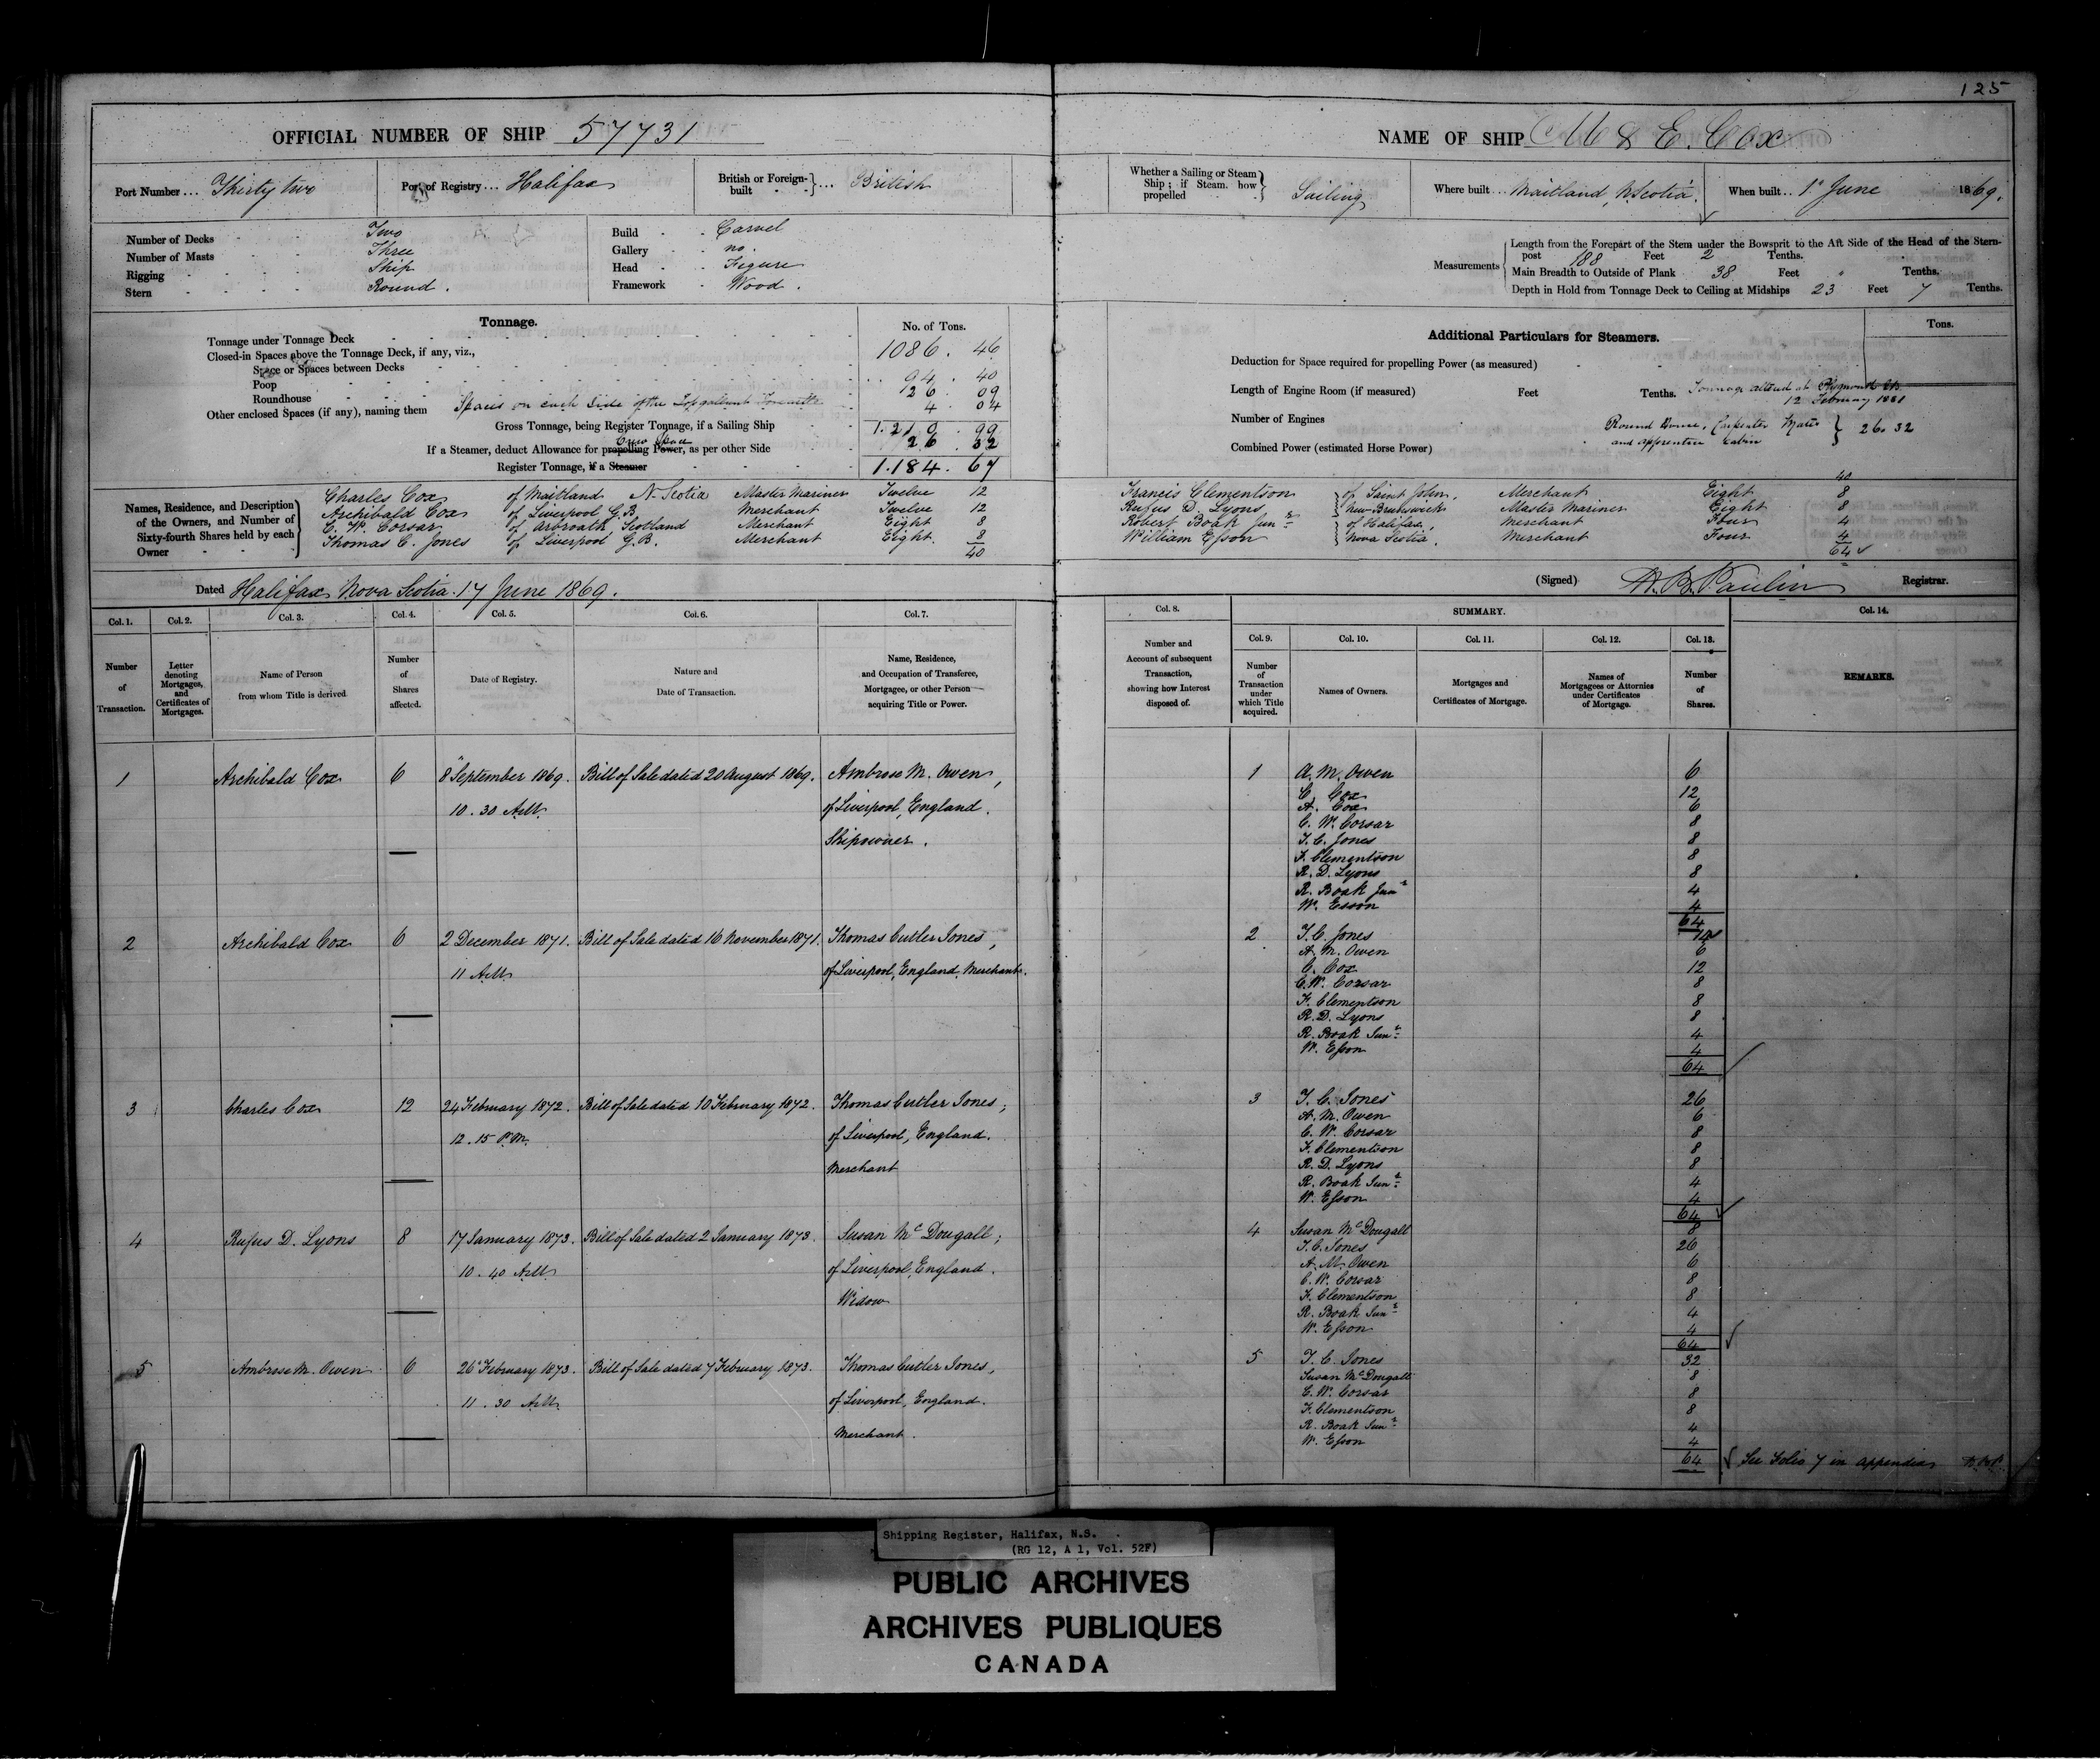 125
OFFICIAL NUMBER OF SHIP 57731
Port Number... Thirty two
Port of Registry... Halifax
British or Foreign-built } ... British
Number of Decks Two
Number of Masts Three
Rigging Ship
Stern Round.
Build Carvel
Gallery no.
Head Figure
Framework Wood.
Tonnage.
No. of Tons.
Tonnage under Tonnage Deck 1086. 46
Closed-in Spaces above the Tonnage Deck, if any, viz.,
Space or Spaces between Decks
Poop 94. 40
Roundhouse 26. 09
Other enclosed Spaces (if any), naming them Spaces on each side of the Topgallant Forecastle 4 04
Gross Tonnage, being Register Tonnage, if a Sailing Ship 1.210. 99
Crew Space
If a Steamer, deduct Allowance for propelling Power, as per other Side 26. 32
Register Tonnage, if a Steamer 1.184. 67
Names, Residence, and Description of the Owners, and Number of Sixty-fourth Shares held by each Owner
Charles Cox of Maitland N. Scotia Master Mariner Twelve 12
Archibald Cox of Liverpool G.B. Merchant Twelve 12
C. W. Corsar of Arbroath Scotland Merchant Eight 8
Thomas C. Jones of Liverpool G.B. Merchant Eight. 8
40
Dated Halifax Nova Scotia. 17 June 1869.
Col. 1. Col. 2. Col. 3. Col. 4. Col. 5. Col. 6. Col. 7.
Number of Transaction.
Letter denoting Mortgages, and Certificates of Mortgages.
Name of Person from whom Title is derived
Number of Shares affected.
Date of Registry.
Nature and Date of Transaction.
Name, Residence, and Occupation of Transferee, Mortgagee, or other Person acquiring Title or Power.
1 Archibald Cox 6 8 September 1869. Bill of Sale dated 20 August 1869. Ambrose M. Owen,
10.30 AM. of Liverpool, England.
Shipowner.
2 Archibald Cox 6 2 December 1871. Bill of Sale dated 16 November 1871. Thomas Cutler Jones,
11 AM of Liverpool, England, Merchant.
3 Charles Cox 12 24 February 1872. Bill of Sale dated 10 February 1872. Thomas Cutler Jones;
12.15 P.M. of Liverpool, England.
Merchant
4 Rufus D. Lyons 8 17 January 1873. Bill of Sale dated 2 January 1873. Susan McDougall;
10.40 AM of Liverpool, England.
Widow
5 Ambrose M. Owen 6 26 February 1873. Bill of Sale dated 7 February 1873. Thomas Cutler Jones,
11.30 AM. of Liverpool, England.
Merchant.
NAME OF SHIP M & E. Cox
Whether a Sailing or Steam Ship; if Steam, how propelled } Sailing
Where built... Maitland, N. Scotia.
When built.. 1 June 1869.
Measurements
Length from the Forepart of the Stem under the Bowsprit to the Aft Side of the Head of the Stern-
post 188 Feet 2 Tenths.
Main Breadth to Outside of Plank 38 Feet " Tenths.
Depth in Hold from Tonnage Deck to Ceiling at Midships 23 Feet 7 Tenths.
Additional Particulars for Steamers.
Tons.
Deduction for Space required for propelling Power (as measured)
Length of Engine Room (if measured) Feet Tenths.
Tonnage altered at Plymouth
12 February 1881
Number of Engines
Combined Power (estimated Horse Power)
Round House, Carpenter Mates
and apprentice Cabin } 26.32
40
Francis Clementson } of Saint John, Merchant Eight 8
Rufus D. Lyons } New Brunswick Master Mariner Eight 8
Robert Boak Junr } of Halifax, Merchant Four 4
William Esson } Nova Scotia. Merchant Four 4
64
(Signed) H.B. Paulin Registrar.
Col. 8. SUMMARY. Col. 14.
Col. 9. Col. 10. Col. 11. Col. 12. Col. 13.
Number and Account of subsequent Transaction, showing how Interest disposed of.
Number of Transaction under which Title acquired.
Names of Owners.
Mortgages and Certificates of Mortgage.
Names of Mortgagees or Attornies under Certificates of Mortgage.
Number of Shares.
REMARKS.
1 A. M. Owen 6
C. Cox 12
A. Cox 6
C. W. Corsar 8
T. C. Jones 8
F. Clementson 8
R. D. Lyons 8
R. Boak Junr 4
W. Esson 4
64
2 T. C. Jones 14
A. M. Owen 6
C. Cox 12
C. W. Corsar 8
F. Clementson 8
R. D. Lyons 8
R. Boak Junr 4
W. Esson 4
64
3 T. C. Jones 26
A. M. Owen 6
C. W. Corsar 8
F. Clementson 8
R. D. Lyons 8
R. Boak Junr 4
W. Esson 4
64
4 Susan McDougall 8
T. C. Jones 26
A. M. Owen 6
C. W. Corsar 8
F. Clementson 8
R. Boak Junr 4
W. Esson 4
64
5 T. C. Jones 32
Susan McDougall 8
C. W. Corsar 8
F. Clementson 8
R. Boak Junr 4
W. Esson 4
64 See Folio 7 in appendix
Shipping Register, Halifax, N.S.
(RG 12, A 1, Vol. 52F)
PUBLIC ARCHIVES
ARCHIVES PUBLIQUES
CANADA